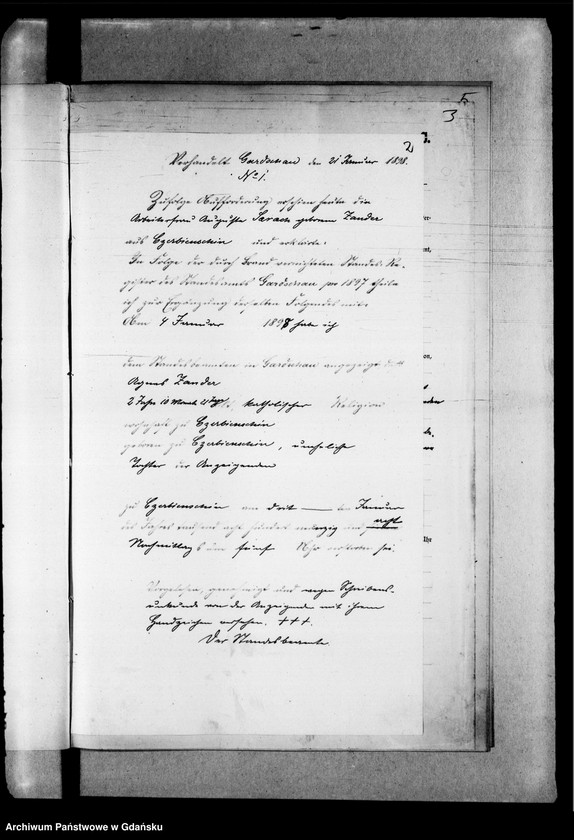 5
3
2
Verhandelt Gardschau den 21 Januar 1898.
No 1.
Zufolge Aufforderung erschien heute die
Arbeiterfrau Auguste geborene Zander
aus Czerbienschin und erklärte:
In Folge der durch Brand vernichteten Standes-Re-
gister des Standesamts Gardschau pro 1897 theile
ich zur Ergänzung derselben Folgendes mit:
Am 4 Januar 1898 habe ich
dem Standesbeamten in Gardschau angezeigt daß
Agnes Zander
2 Jahre 10 Monat 21 Tage alt, katholischer Religion
wohnhaft zu Czerbienschin
geboren zu Czerbienschin, uneheliche
Tochter der Anzeigenden
zu Czerbienschin am drit — en Januar
des Jahres tausend acht hundert neunzig und acht
Nachmittags um fünf Uhr verstorben sei.
Vorgelesen, genehmigt und wegen Schreibens-
unkunde von der Anzeigenden mit ihrem
Handzeichen versehen. +++.
Der Standesbeamte.
Uhr
Archiwum Państwowe w Gdańsku